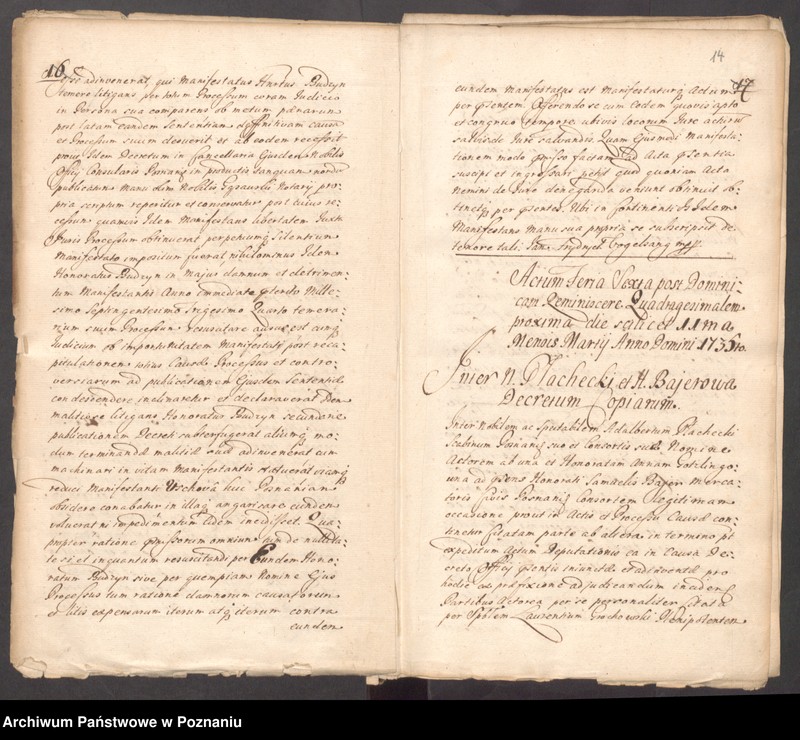 16
esse adinvenerat, qui Manifestatus Hnrtus Budzyn
temere litigans per totum Processum coram Judicio
in Persona sua comparens ob metum pænarum
post latam eandem Sententiam deffinitivam causa
et Processu suum deseruit et ab eodem recessit
prout Idem Decretum in Cancellaria ejusdem Nobilis
Officij Consularis Posnaniensis
publicatum manu dim Nobilis Notarij pro-
pria scriptum reperitur et conservatur post cuius re-
cessum quamvis Idem Manifestans libertatem Juxta
Juris Processum obtinuerat, perpetuumq silentium
Manifestato impositum fuerat nihilominus Idem
Honoratus Budzyn in majus damnum et detrimen-
tum Manifestantis Anno immediate pterito Mille-
simo Septingentesimo Trigesimo Quarto temera-
rium suum Processum ausus est cumq
Judicium ob importunitatem Manifestati post reca-
pitulationem totius Causæ Processus et contro-
versiarum ad publicationem ejusdem Sententiæ
condescendere inclinaretur et declaraverat Dum
malitiose litigans Honoratus Budzyn secundæ
publicationem Decreti subterfugerat aliumq mo-
dum terminandæ malitiæ suæ adinvenerat cum
machinari in vitam Manifestantis
reduci Manifestanti Wschova huc Posnaniam
obsidere conabatur in illaq angarisare eundem
voluerat ni impedimentum eidem incedisset. Qua-
propter ratione pmissorum omnium tum de nullita-
te si et inquantum resuscitandi per Eundem Hono-
ratum Budzyn sive per quempiam Nomine Ejus
Processus tum ratione damnorum causatorum
et litis expensarum iterum atq iterum contra
eundem
14
17
eundem manifestatus est Manifestaturq Actum
per psentem Offerendo se cum Eodem quovis apto
et congruo tempore ubivis locorum Jure acturum
salvis de Jure salvandis. Quam Ejusmodi Manifesta-
tionem modo pmisso factam ad Acta psentia
suscipi et ingrossari petijt quod quoniam Acta
Nemini de Jure deneganda veniunt obtinuit ob-
tentq per psentes. Ubi in continenti Isdem
Manifestans manu sua propria se subscripsit de
tenore tali: Jan Frydrych Bogelsang mpp.
Actum Feria Sexta post Domini-
cam Reminiscere Quadragesimalem
proxima die scilicet 11ma
Mensis Martij Anno Domini 1735to.
Inter N. Płachecki et H. Bajerowa
Decretum Copiarum.
Inter Nobilem ac Spectabilem Adalbertum Płachecki
Scabinum Posnaniæ suo et Consortis suæ Nomine
Actorem ab una et Honoratam Annam
ad psens Honorati Samuelis Bajer Merca-
toris Civis Posnaniæ Consortem Legitimam
occasione prout in Actis et Processu Causæ con-
tinetur Citatam parte ab altera in termino pt
expeditum Actum Deputationis ea in Causa De-
creto Officij psentis iniunctæ et adinventæ pro
hodie ac præfixione adjudicandum inciden
Partibus Actorea per se personaliter Citata
per Spblem Laurentium Grochowski Plenipotentem
Archiwum Państwowe w Poznaniu